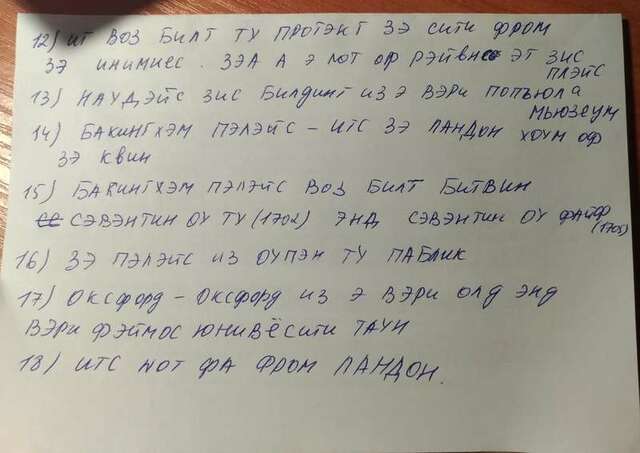 12) ИТ ВОЗ БИЛТ ТУ ПРОТЭКТ ЗЭ СИТИ ФРОМ
ЗЭ ИНИМИЕС. ЗЭА А Э ЛОТ ОФ РЭЙВНС ЭТ ЗИС
ПЛЭЙС
13) НАУДЭЙС ЗИС БИЛДИНГ ИЗ Э ВЭРИ ПОПЬЮЛА
МЬЮЗЕУМ
14) БАКИНГХЭМ ПЭЛЭЙС – ИТС ЗЭ ЛАНДОН ХОУМ ОФ
ЗЭ КВИН
15) БАКИНГХЭМ ПЭЛЭЙС ВОЗ БИЛТ БИТВИН
СЭВЭНТИН ОУ ТУ (1702) ЭНД СЭВЭНТИН ОУ ФАЙФ
(1705)
16) ЗЭ ПЭЛЭЙС ИЗ ОУПЭН ТУ ПАБЛИК
17) ОКСФОРД – ОКСФОРД ИЗ Э ВЭРИ ОЛД ЭНД
ВЭРИ ФЭЙМОС ЮНИВЁСИТИ ТАУН
18) ИТС NОТ ФА ФРОМ ЛАНДОН.